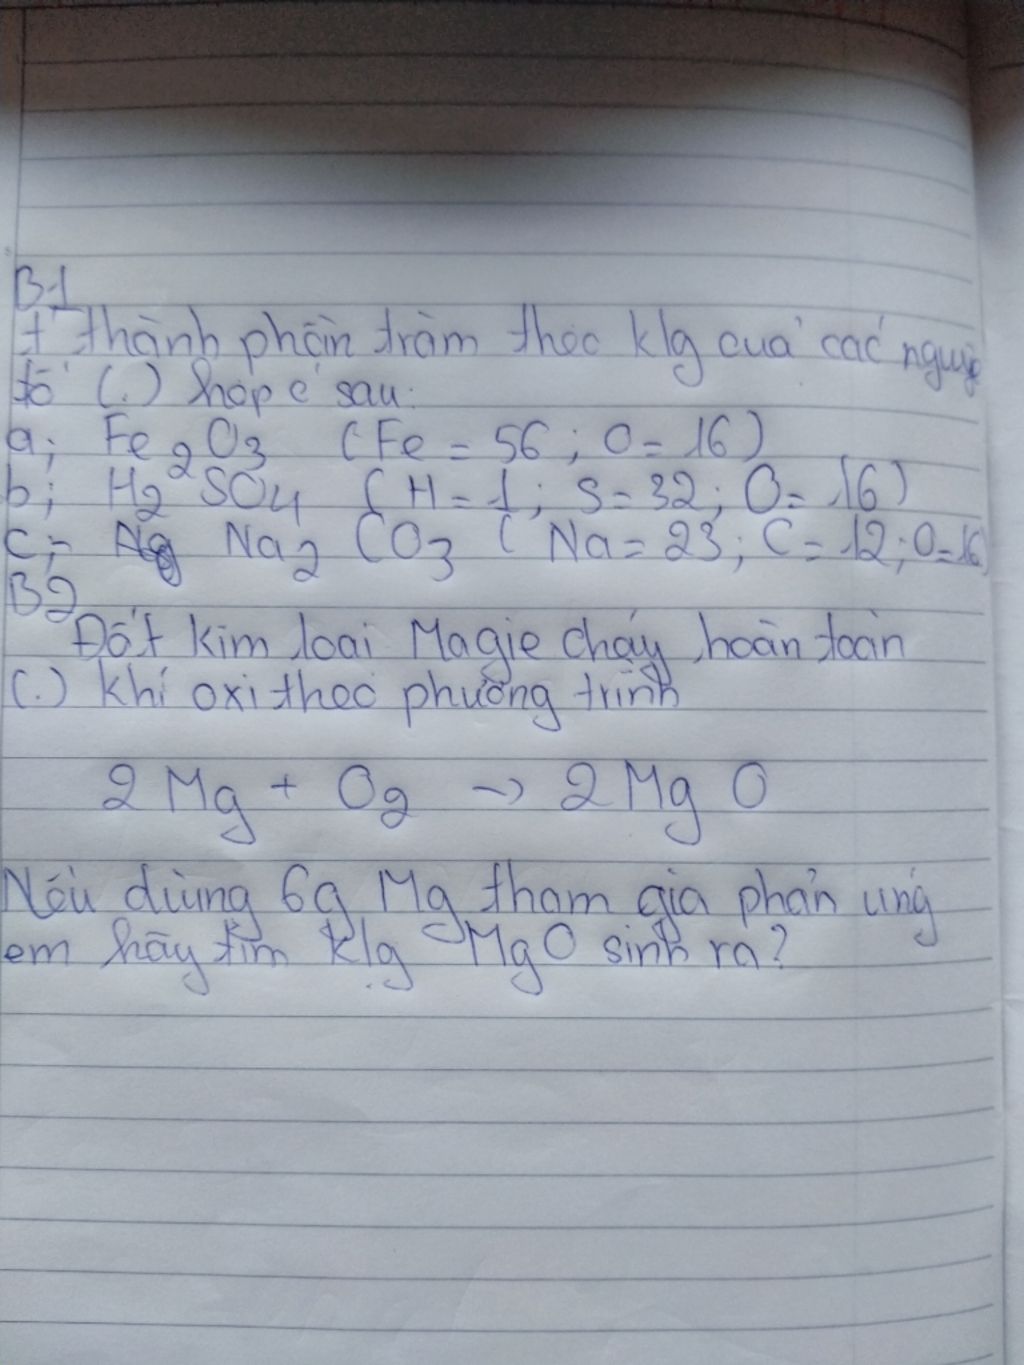 B1
t' thành phần trăm theo klg của các nguyê
tố (.) hợp c' sau:
a; Fe2O3 (Fe = 56 ; O = 16)
b; H2SO4 ( H = 1 ; S = 32 ; O = 16)
c; Na2CO3 ( Na = 23 ; C = 12 ; O = 16)
B2
Đốt kim loại Magie cháy hoàn toàn
(.) khí oxi theo phương trình
2 Mg + O2 → 2 Mg O
Nếu dùng 6g Mg tham gia phản ứng
em hãy tìm klg MgO sinh ra?